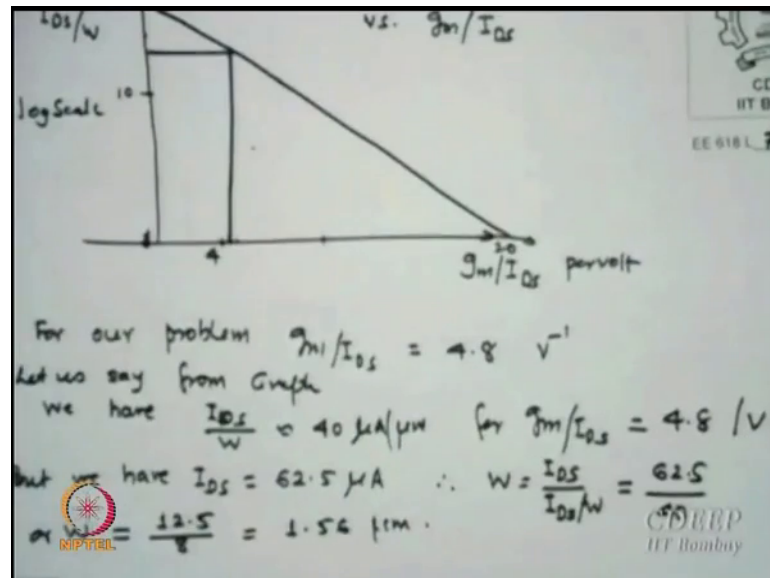 IDS/W
vs. gm/IDS
10
log Scale
CD
IIT B
EE 618 L
4
20
gm/IDS per volt
For our problem gm1/IDS = 4.8 V⁻¹
Let us say from Graph
We have IDS/W ≈ 40 μA/μm for gm/IDS = 4.8 /V
but we have IDS = 62.5 μA ∴ W = IDS/IDS/W = 62.5/
= 12.5/8 = 1.56 μm.
NPTEL
CDEEP
IIT Bombay